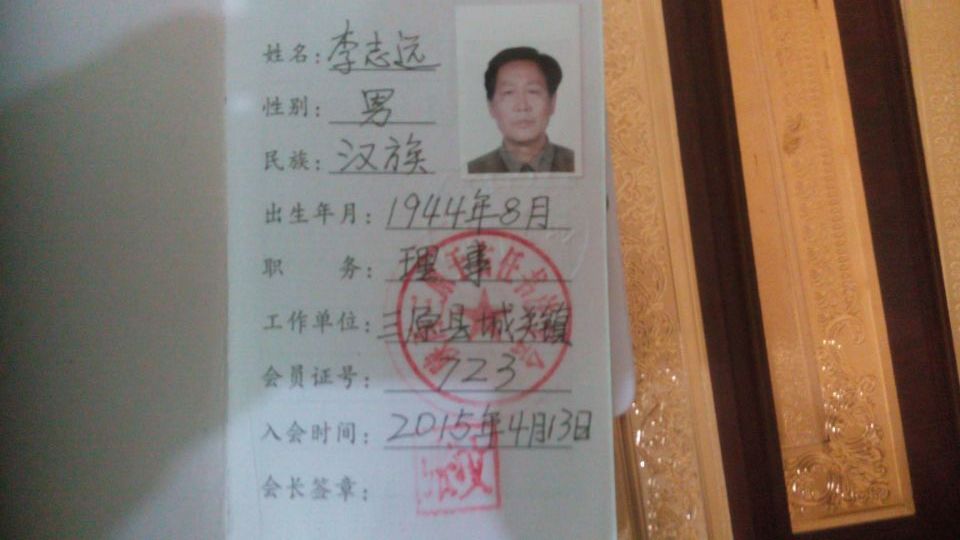 姓名：李志远
性别：男
民族：汉族
出生年月：1944年8月
职 务：理事
工作单位：三原县城关镇
会员证号：723
入会时间：2015年4月13日
会长签章：